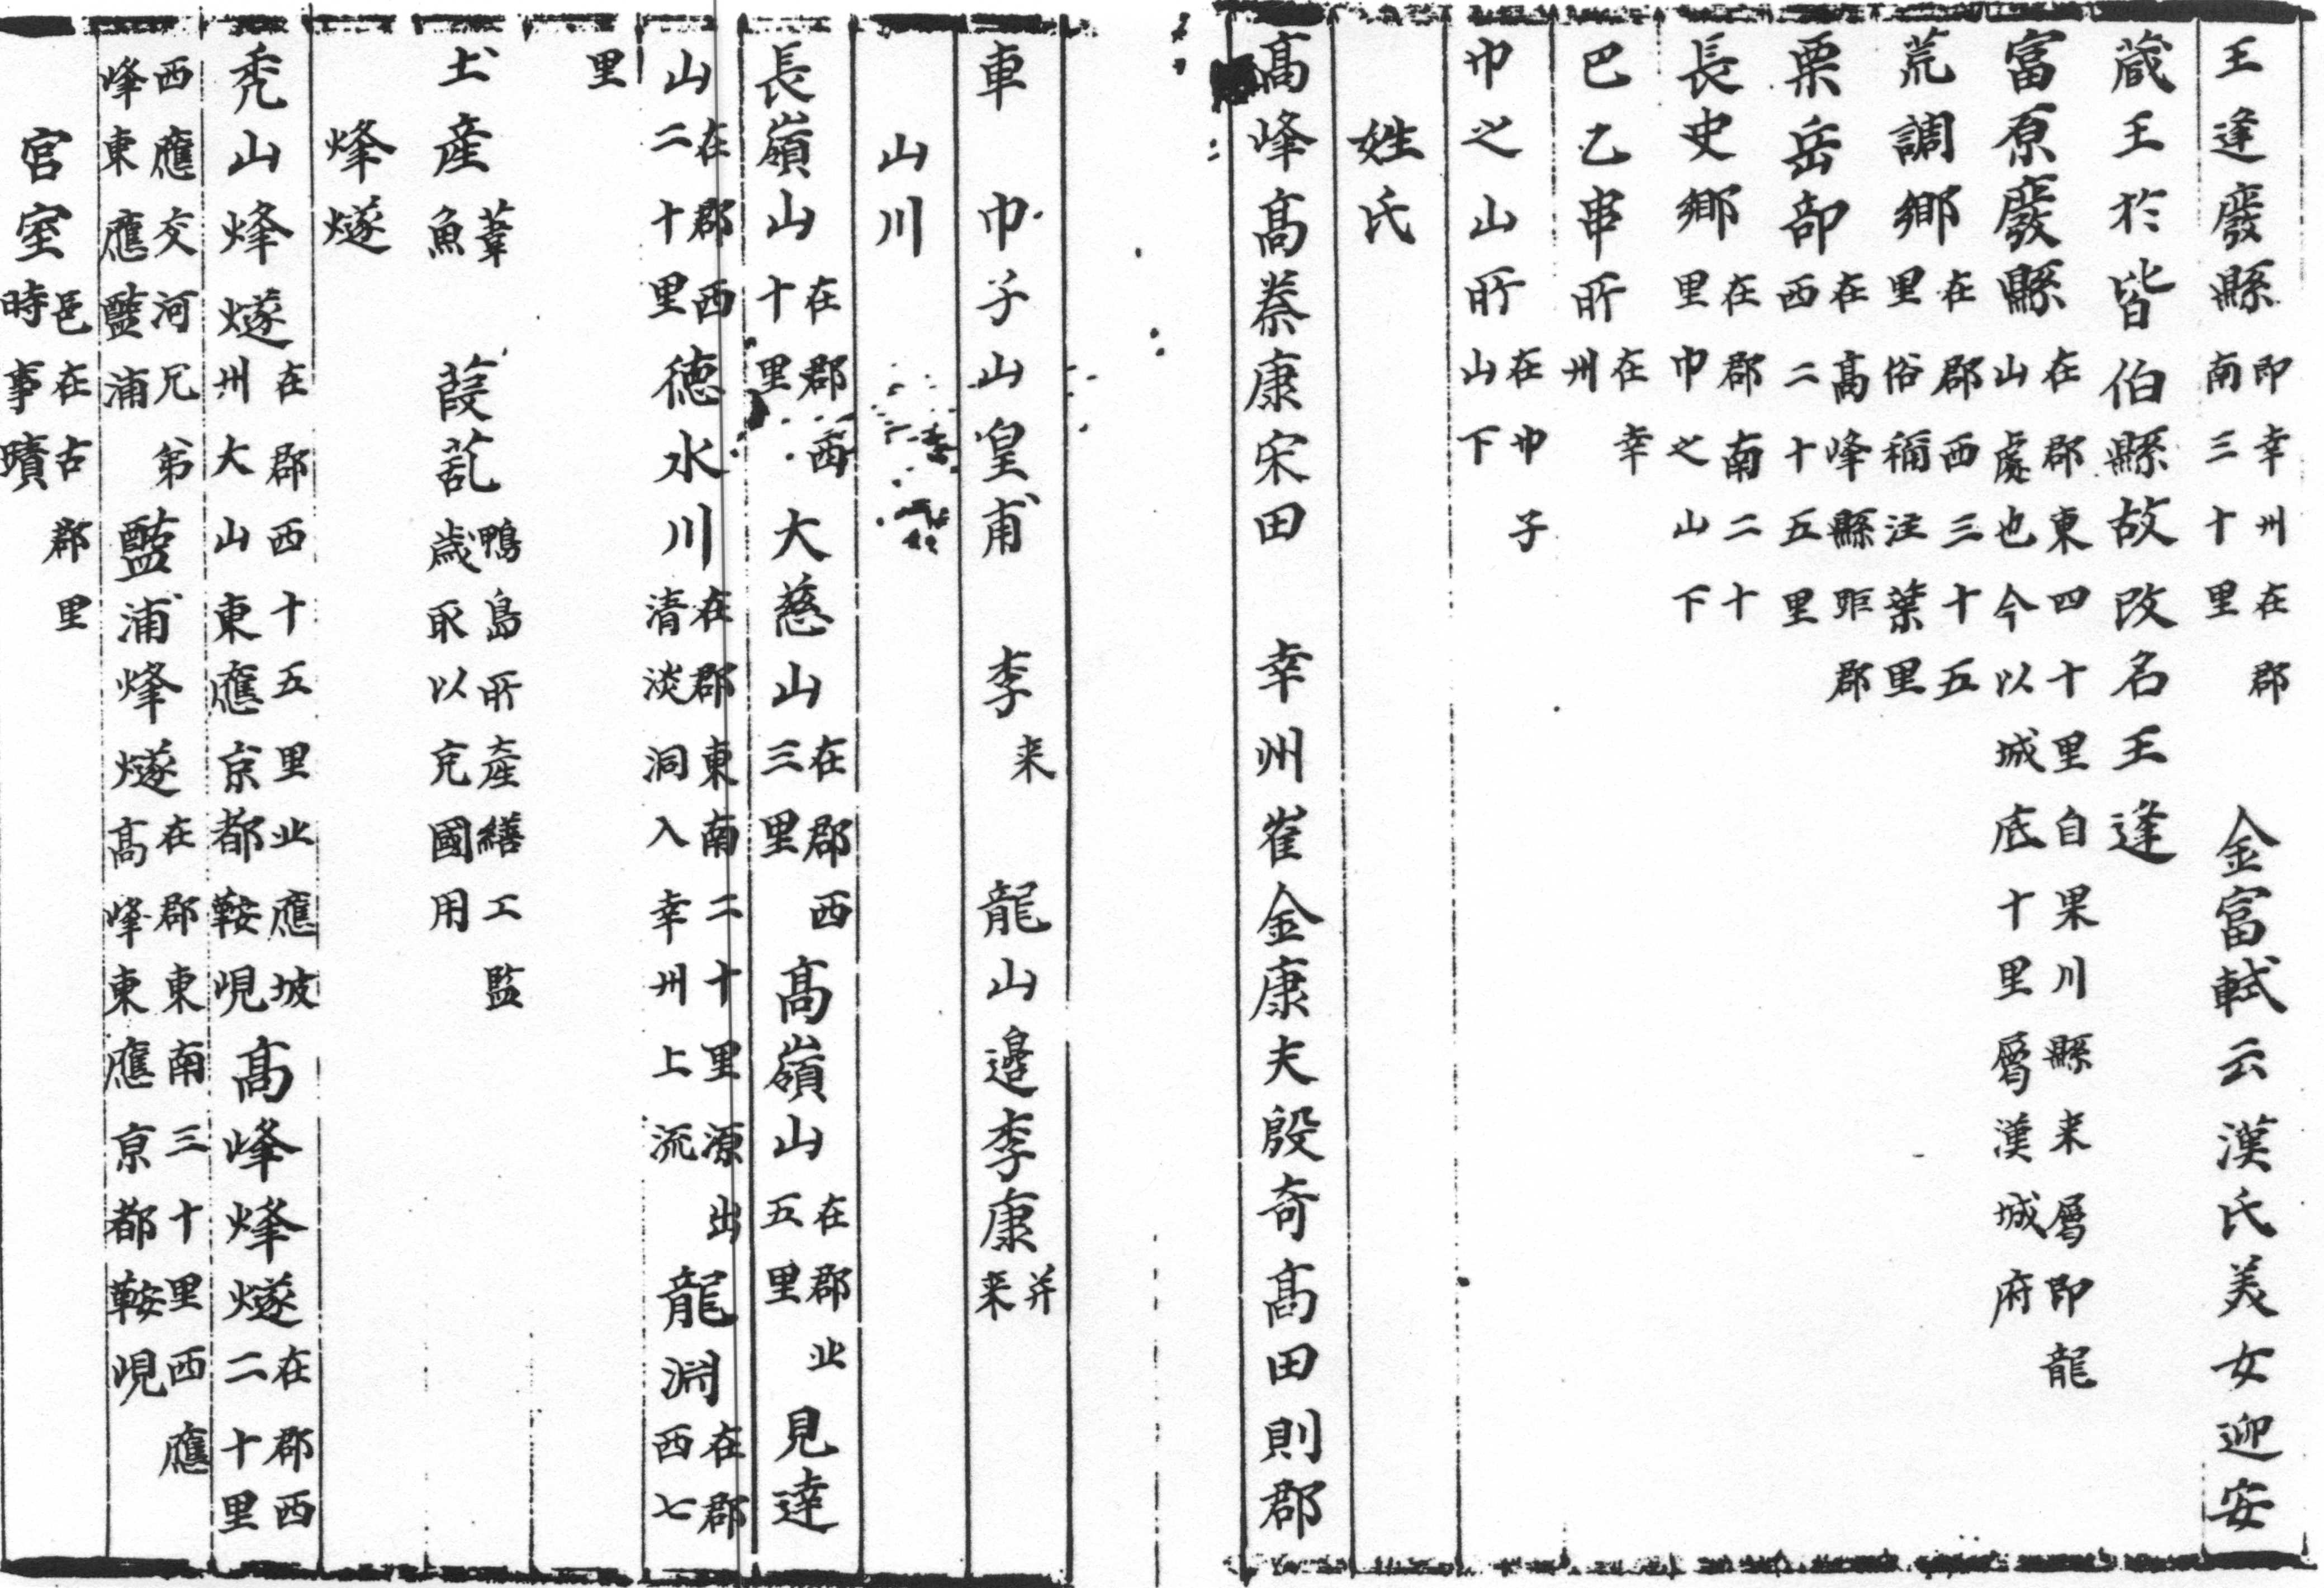 王逢廢縣即幸州在郡南三十里 金富軾云漢氏美女迎安
蔵王於皆伯縣故改名王逢
富原廢縣在郡東四十里自果川縣来屬即龍山處也今以城底十里屬漢城府
荒調鄉在郡西三十五里俗稱注葉里
栗岳部在高峰縣距郡西二十五里
長史鄉在郡南二十里巾之山下
巴乙串所在幸州
巾之山所在巾子山下
姓氏
高峰高蔡康宋田 幸州崔金康夫殷奇高田則郡
車 巾子山皇甫 李来 龍山邉李康并来
山川
長嶺山在郡西十里 大慈山在郡西三里 高嶺山在郡北五里 見達
山在郡西二十里 德水川在郡東南二十里源出清淡洞入幸州上流 龍淵在郡西七
里
土産 葦魚 葭薍鴨島所産繕工監歳取以充國用
烽燧
禿山烽燧在郡西十五里北應坡州大山東應京都鞍峴 高峰烽燧在郡西二十里
西應交河兄弟峰東應鹽浦 鹽浦烽燧在郡東南三十里西應高峰東應京都鞍峴
官室邑在古郡里時事蹟